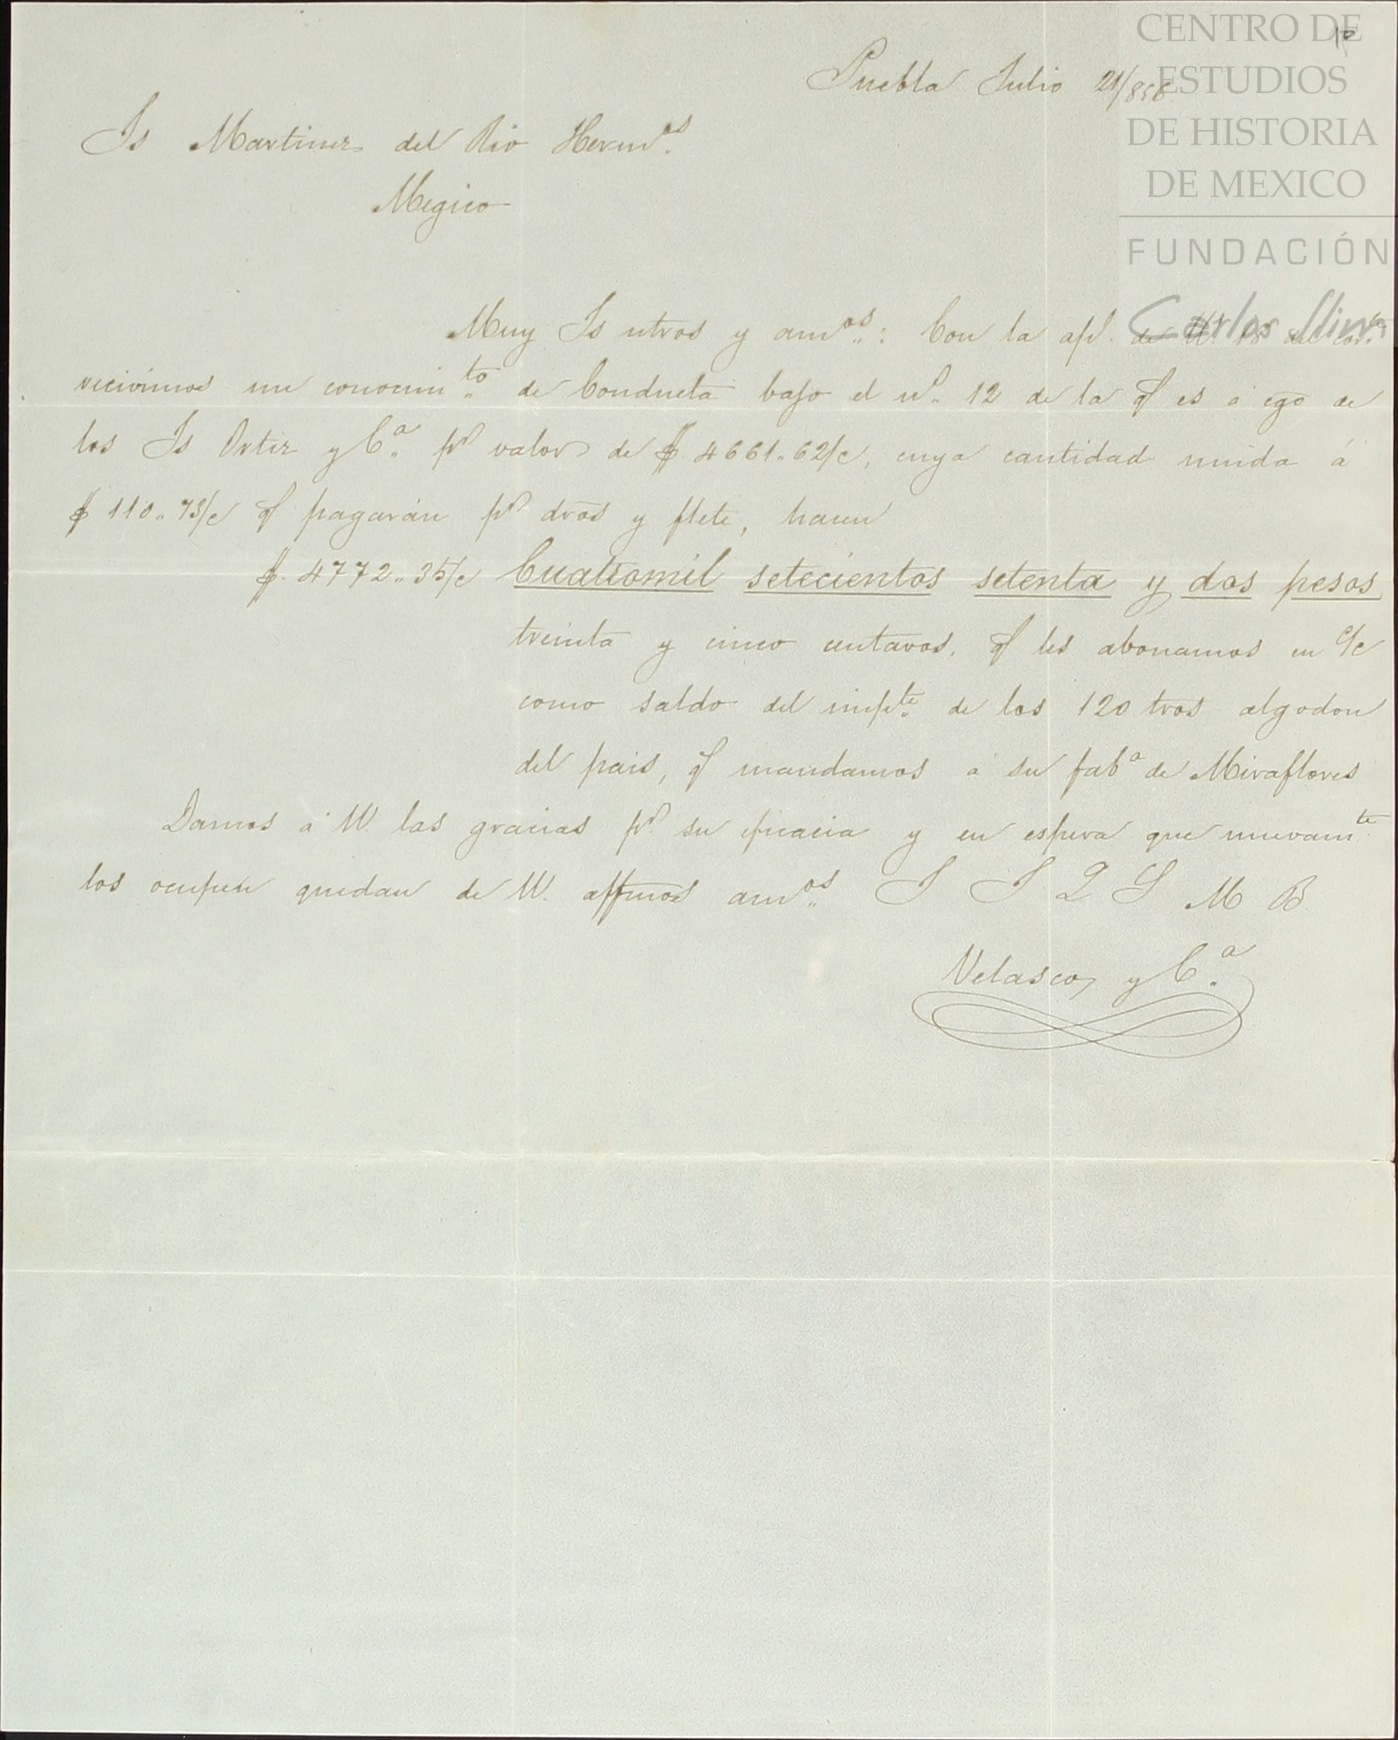 CENTRO DE
ESTUDIOS
DE HISTORIA
DE MEXICO
FUNDACIÓN
Carlos Slim
10
Puebla Julio 21/858
Ss Martinez del Rio Hermos.
Megico
Muy Ss ntros y amos.: Con la apl. de W. 18 del corte
recivimos un conocimto. de Conducta bajo el no. 12 de la q es á cgo de
los Ss Ortiz y Ca. pr valor de $ 4661.62/c, cuya cantidad unida á
$ 110.73/c q pagarán pr dros y flete, hacen
$. 4772.35/c Cuatromil setecientos setenta y dos pesos
treinta y cinco centavos. q les abonamos en c/c
como saldo del impte. de los 120 tros algodon
del pais, q mandamos á su faba de Miraflores
Damos á W. las gracias pr. su eficacia y en espera que nuevamte
los ocupen quedan de W. affmos amos. S S Q S M B
Velasco y Ca.